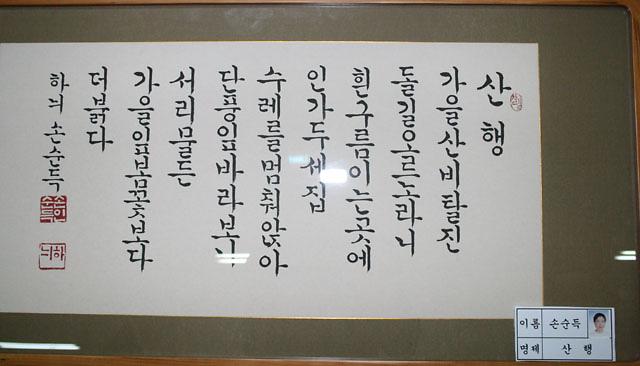 산행
가을산비탈진
돌길오르노라니
흰구름이는곳에
인가두세집
수레를멈춰앉아
단풍잎바라보니
서리물든
가을잎봄꽃보다
더붉다
하늬 손순득
손인
순득
하늬
이름 손순득
명제 산행